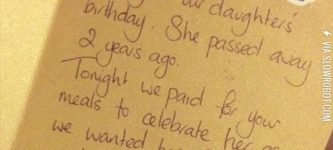 daughters'
birthday. She passed away
2 years ago.
Tonight we paid for your
meals to celebrate her
we wanted
VIA SLOWROBOT.COM